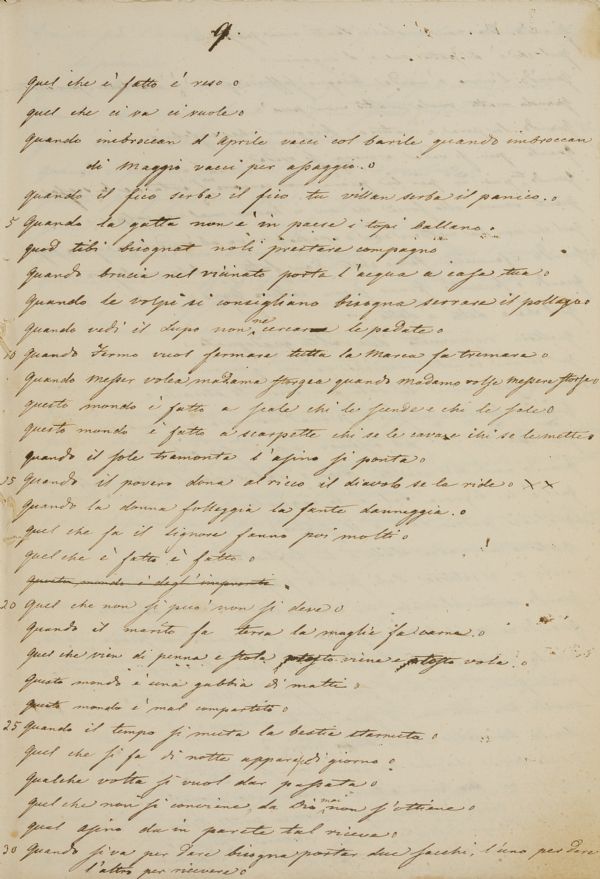 q.
quel che è fatto è reso
quel che ci va ci vuole
quando imbroccan d'Aprile vacci col barile quando imbroccan
di Maggio vacci per assaggio.
quando il fico serba il fico tu villan serba il panico.
5 Quando la gatta non è in paese i topi ballano.
quod tibi bisognat noli prestare compagno
quando brucia nel vicinato porta l'acqua a casa tua
Quando le volpi si consigliano bisogna serrare il pollajo
quando vedi il Lupo non ne cercare le pedate
10 Quando Fermo vuol fermare tutta la Marca fa tremare
Quando Messer volea madama storgea quando Madama volse Messere storse
questo mondo è fatto a scale chi le scende e chi le sale
questo mondo è fatto a scarpette chi se le cava e chi se le mette
quando il sole tramonta l'asino si ponta
15 Quando il povero dona al ricco il diavolo se la ride x x
Quando la donna folleggia la fante danneggia.
quel che fa il signore fanno poi molti
quel che è fatto è fatto
questo mondo è degl'impronti
20 Quel che non si può non si deve
Quando il marito fa terra la moglie fa carne.
quel che vien di penna e stola tosto viene e tosto vola.
Questo mondo è una gabbia di matti
Questo mondo è mal compartito
25 Quando il tempo si muta la bestia starnuta
Quel che si fa di notte appare di giorno
qualche volta si vuol dar passata
quel che non si conviene da Dio mai non s'ottiene
qual asino da in parete tal riceve
30 Quando si va per dare bisogna portar due sacchi, l'uno per dare
l'altro per ricevere